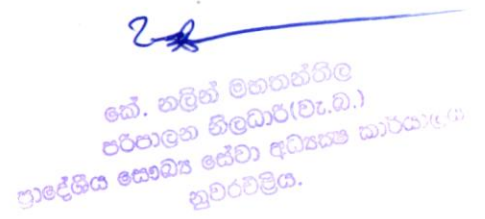 කේ. නලින් මහතන්තිල
පරිපාලන නිලධාරි(වැ.බ.)
ප්‍රාදේශීය සෞඛ්‍ය සේවා අධ්‍යක්ෂ කාර්යාලය
නුවරඑළිය.